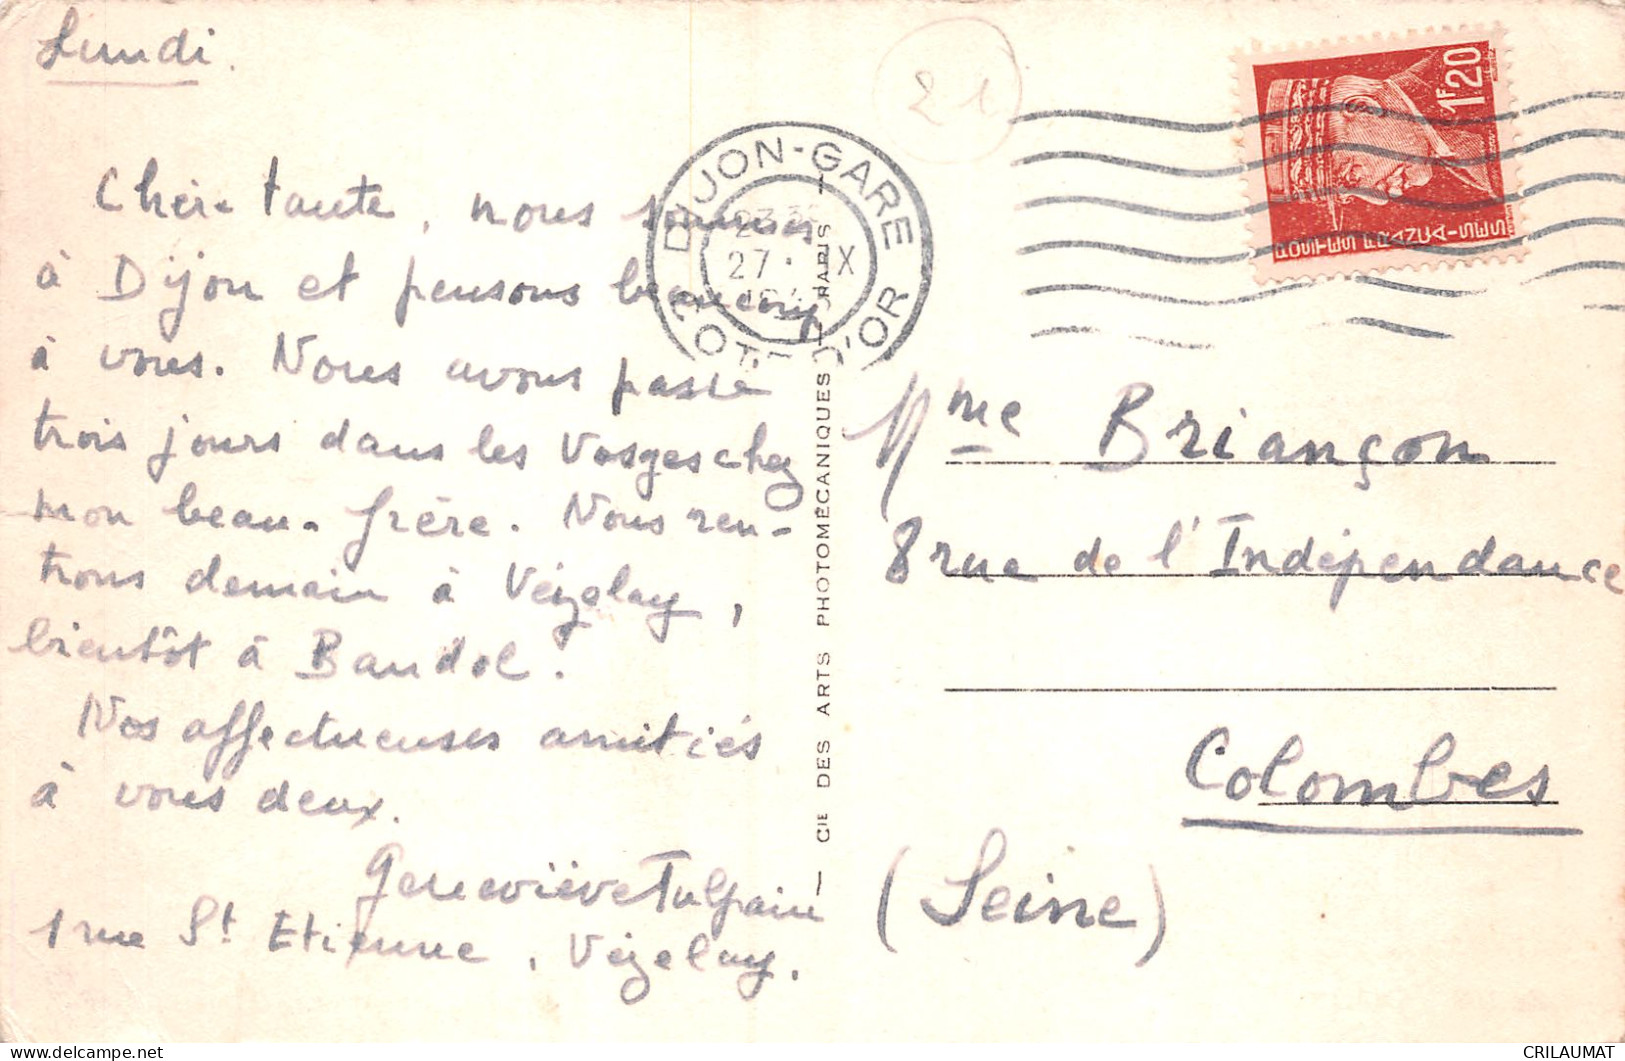 Lundi.
Chère tante, nous sommes
à Dijon et pensons beaucoup
à vous. Nous avons passé
trois jours dans les Vosges chez
mon beau-frère. Nous ren-
trons demain à Vézelay,
bientôt à Bandol.
Nos affectueuses amitiés
à vous deux.
Geneviève
1 rue St Etienne, Vézelay.
21
DIJON-GARE
27 . IX
CÔTE D'OR
1F20
POSTES FRANÇAISES
— CIE DES ARTS PHOTOMÉCANIQUES — PARIS —
Mme Briançon
8 rue de l'Indépendance
Colombes
(Seine)
CRILAUMAT